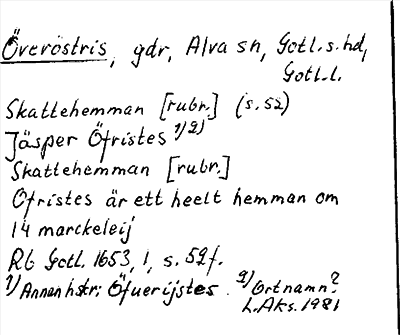 Överöstris, gdr, Alva sn, Gotl. s. hd,
Gotl. l.
Skattehemman [rubr.] (s. 52)
Jäsper Öfristes 1) 2)
Skattehemman [rubr.]
Öfristes är ett heelt hemman om
14 marckeleij
Rb Gotl. 1653, 1, s. 52f.
1) Annan hstr: Öfuerijstes. 2) Ortnamn?
L.Aks. 1981